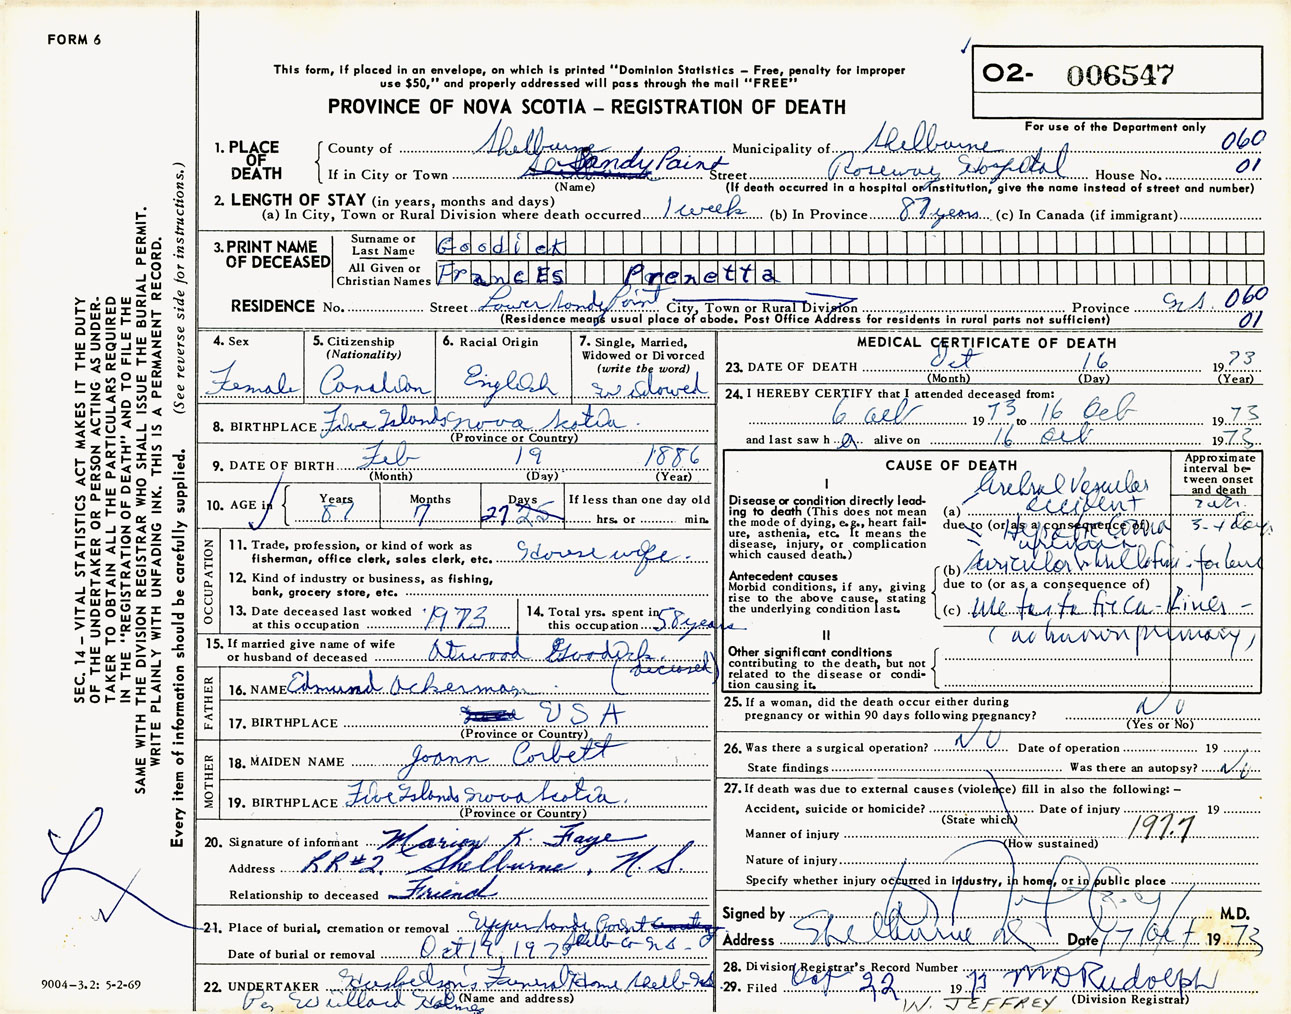 FORM 6
This form, if placed in an envelope, on which is printed "Dominion Statistics – Free, penalty for improper
use $50," and properly addressed will pass through the mail "FREE"
PROVINCE OF NOVA SCOTIA – REGISTRATION OF DEATH
O2- 006547
For use of the Department only
060
01
1. PLACE OF DEATH
County of Shelburne Municipality of Shelburne
If in City or Town Sandy Point Street Roseway Hospital House No.
(Name) (If death occurred in a hospital or institution, give the name instead of street and number)
2. LENGTH OF STAY (in years, months and days)
(a) In City, Town or Rural Division where death occurred 1 week (b) In Province 87 years (c) In Canada (if immigrant)
3. PRINT NAME OF DECEASED
Surname or Last Name Goodick
All Given or Christian Names Frances Prenetta
RESIDENCE No. Street Lower Sandy Point City, Town or Rural Division Province N.S. 060
(Residence means usual place of abode. Post Office Address for residents in rural parts not sufficient) 01
4. Sex Female
5. Citizenship (Nationality) Canadian
6. Racial Origin English
7. Single, Married, Widowed or Divorced (write the word) Widowed
8. BIRTHPLACE Five Islands Nova Scotia
(Province or Country)
9. DATE OF BIRTH Feb 19 1886
(Month) (Day) (Year)
10. AGE in Years 87 Months 7 Days 27 If less than one day old
hrs. or min.
OCCUPATION
11. Trade, profession, or kind of work as
fisherman, office clerk, sales clerk, etc. Housewife
12. Kind of industry or business, as fishing,
bank, grocery store, etc.
13. Date deceased last worked
at this occupation 1973
14. Total yrs. spent in
this occupation 58 years
15. If married give name of wife
or husband of deceased Atwood Goodick (deceased)
FATHER
16. NAME Edmund Ackerman
17. BIRTHPLACE USA
(Province or Country)
MOTHER
18. MAIDEN NAME Joann Corbett
19. BIRTHPLACE Five Islands Nova Scotia.
(Province or Country)
20. Signature of informant Marion K. Faye
Address RR#2, Shelburne, N.S.
Relationship to deceased Friend
21. Place of burial, cremation or removal Upper Sandy Point
Shelb Co N.S.
Date of burial or removal Oct 19, 1973
22. UNDERTAKER Huskilson's Funeral Home Shelb NS
(Name and address)
Per Willard Holmes
MEDICAL CERTIFICATE OF DEATH
23. DATE OF DEATH Oct 16 1973
(Month) (Day) (Year)
24. I HEREBY CERTIFY that I attended deceased from:
6 Oct 1973 to 16 Oct 1973
and last saw h alive on 16 Oct 1973
CAUSE OF DEATH
Approximate interval between onset and death
I
Disease or condition directly leading to death (This does not
mean the mode of dying, e.g., heart failure, asthenia, etc. It means the
disease, injury, or complication
which caused death.)
(a) Cerebral Vascular accident
due to (or as a consequence of)
3-4 days
Antecedent causes
Morbid conditions, if any, giving
rise to the above cause, stating
the underlying condition last.
(b) auricular fibrillation
due to (or as a consequence of)
(c) Metastatic Ca-Liver -
(no known primary)
II
Other significant conditions
contributing to the death, but not
related to the disease or condition causing it.
25. If a woman, did the death occur either during
pregnancy or within 90 days following pregnancy? No
(Yes or No)
26. Was there a surgical operation? No Date of operation 19
State findings Was there an autopsy? No
27. If death was due to external causes (violence) fill in also the following: –
Accident, suicide or homicide? Date of injury 19
(State which)
Manner of injury 197.7
(How sustained)
Nature of injury
Specify whether injury occurred in industry, in home, or in public place
Signed by M.D.
Address Shelburne NS Date 17 Oct 1973
28. Division Registrar's Record Number
29. Filed Oct 22 1973 MD Rudolph
W. JEFFREY (Division Registrar)
SEC. 14 – VITAL STATISTICS ACT MAKES IT THE DUTY
OF THE UNDERTAKER OR PERSON ACTING AS UNDER-
TAKER TO OBTAIN ALL THE PARTICULARS REQUIRED
IN THE "REGISTRATION OF DEATH" AND TO FILE THE
SAME WITH THE DIVISION REGISTRAR WHO SHALL ISSUE THE BURIAL PERMIT.
WRITE PLAINLY WITH UNFADING INK. THIS IS A PERMANENT RECORD.
Every item of information should be carefully supplied. (See reverse side for instructions.)
9004–3.2: 5-2-69